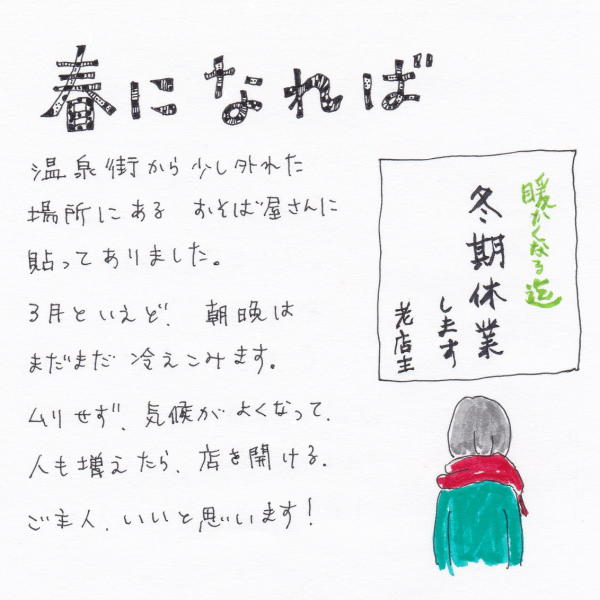 春になれば
温泉街から少し外れた
場所にある おそば屋さんに
貼ってありました。
3月といえど、朝晩は
まだまだ冷えこみます。
ムリせず、気候がよくなって、
人も増えたら、店を開ける。
ご主人、いいと思います!
暖かくなる迄
冬期休業
します
老店主